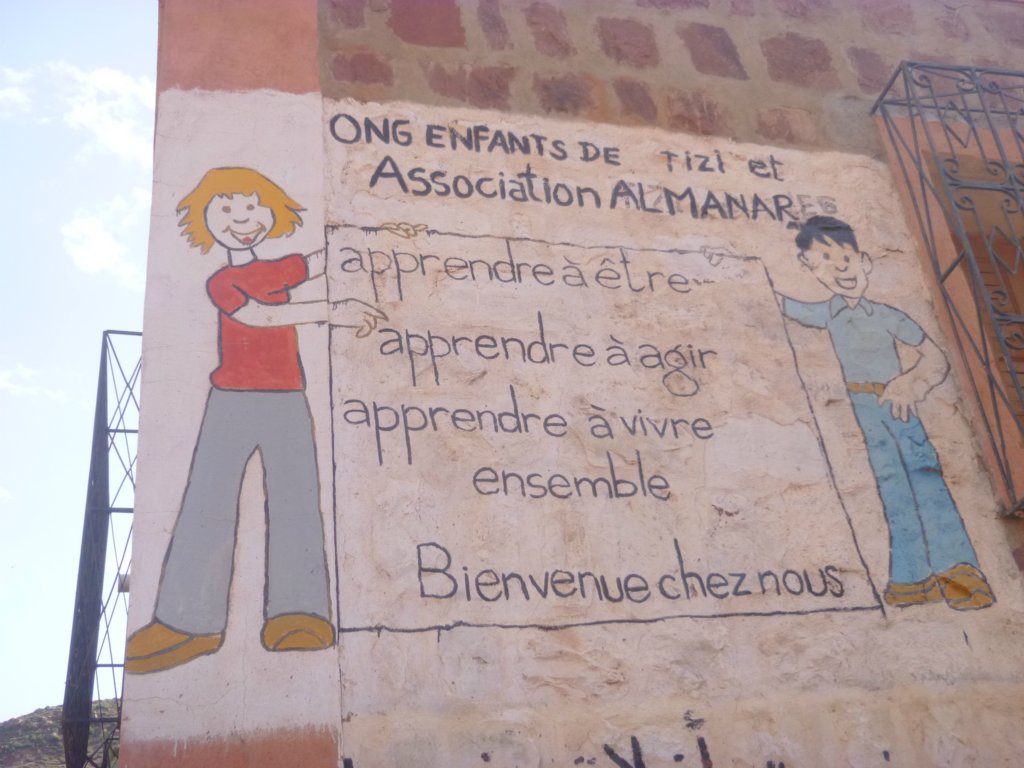 ONG ENFANTS DE TIZI et
Association ALMANARES
apprendre à être...
apprendre à agir
apprendre à vivre
ensemble
Bienvenue chez nous